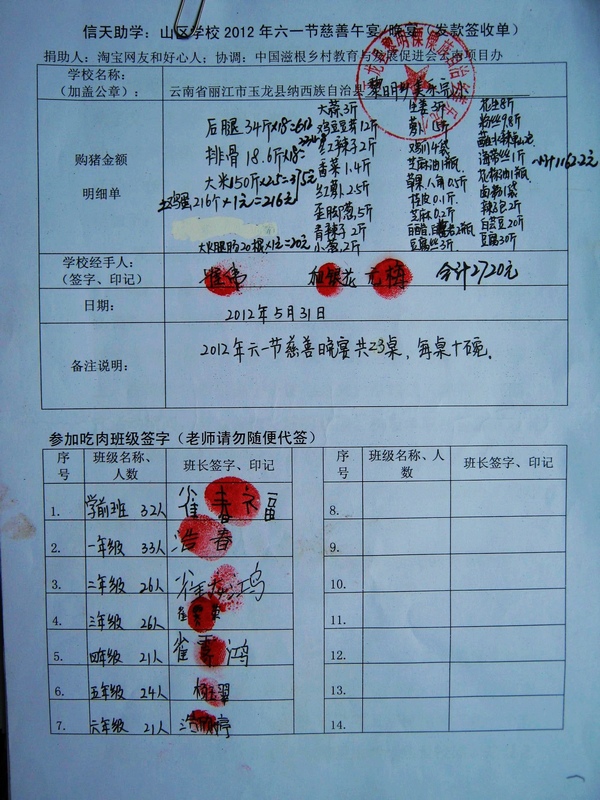 信天助学：山区学校 2012 年六一节慈善午宴（晚宴）发款签收单）
捐助人：淘宝网友和好心人；协调：中国滋根乡村教育与发展促进会云南项目办
学校名称：
（加盖公章）：
云南省丽江市玉龙县纳西族自治县黎明
购猪金额
明细单
后腿34斤×18=612
排骨18.6斤×18=
大米150斤×2.5=375元
鸡蛋216个×1元=216元
火腿肠20根×1元=20元
大蒜3斤
鸡豆豆芽12斤
红辣子2斤
香菜1.4斤
红萝卜2.5斤
5斤
青辣子2斤
小葱2斤
生姜3斤
萝卜15斤
鸡精4袋
芝麻油1瓶
草果八角0.5斤
桂皮0.1斤
芝麻0.2斤
2瓶
豆腐丝3斤
花生8斤
粉丝9.8斤
海带丝1斤
花椒油1瓶
卤粉1袋
2斤
白芸豆20斤
豆腐30斤
小计1162.2元
学校经手人：
（签字、印记）
合计2720元
日期：
2012年5月31日
备注说明：
2012年六一节慈善晚宴共23桌，每桌十碗。
参加吃肉班级签字（老师请勿随便代签）
序号 班级名称、人数 班长签字、印记 序号 班级名称、人数 班长签字、印记
1. 学前班 32人 雀春福 8.
2. 一年级 33人 浩春 9.
3. 二年级 26人 10.
4. 三年级 26人 11.
5. 四年级 21人 雀雪鸿 12.
6. 五年级 24人 13.
7. 六年级 21人 14.